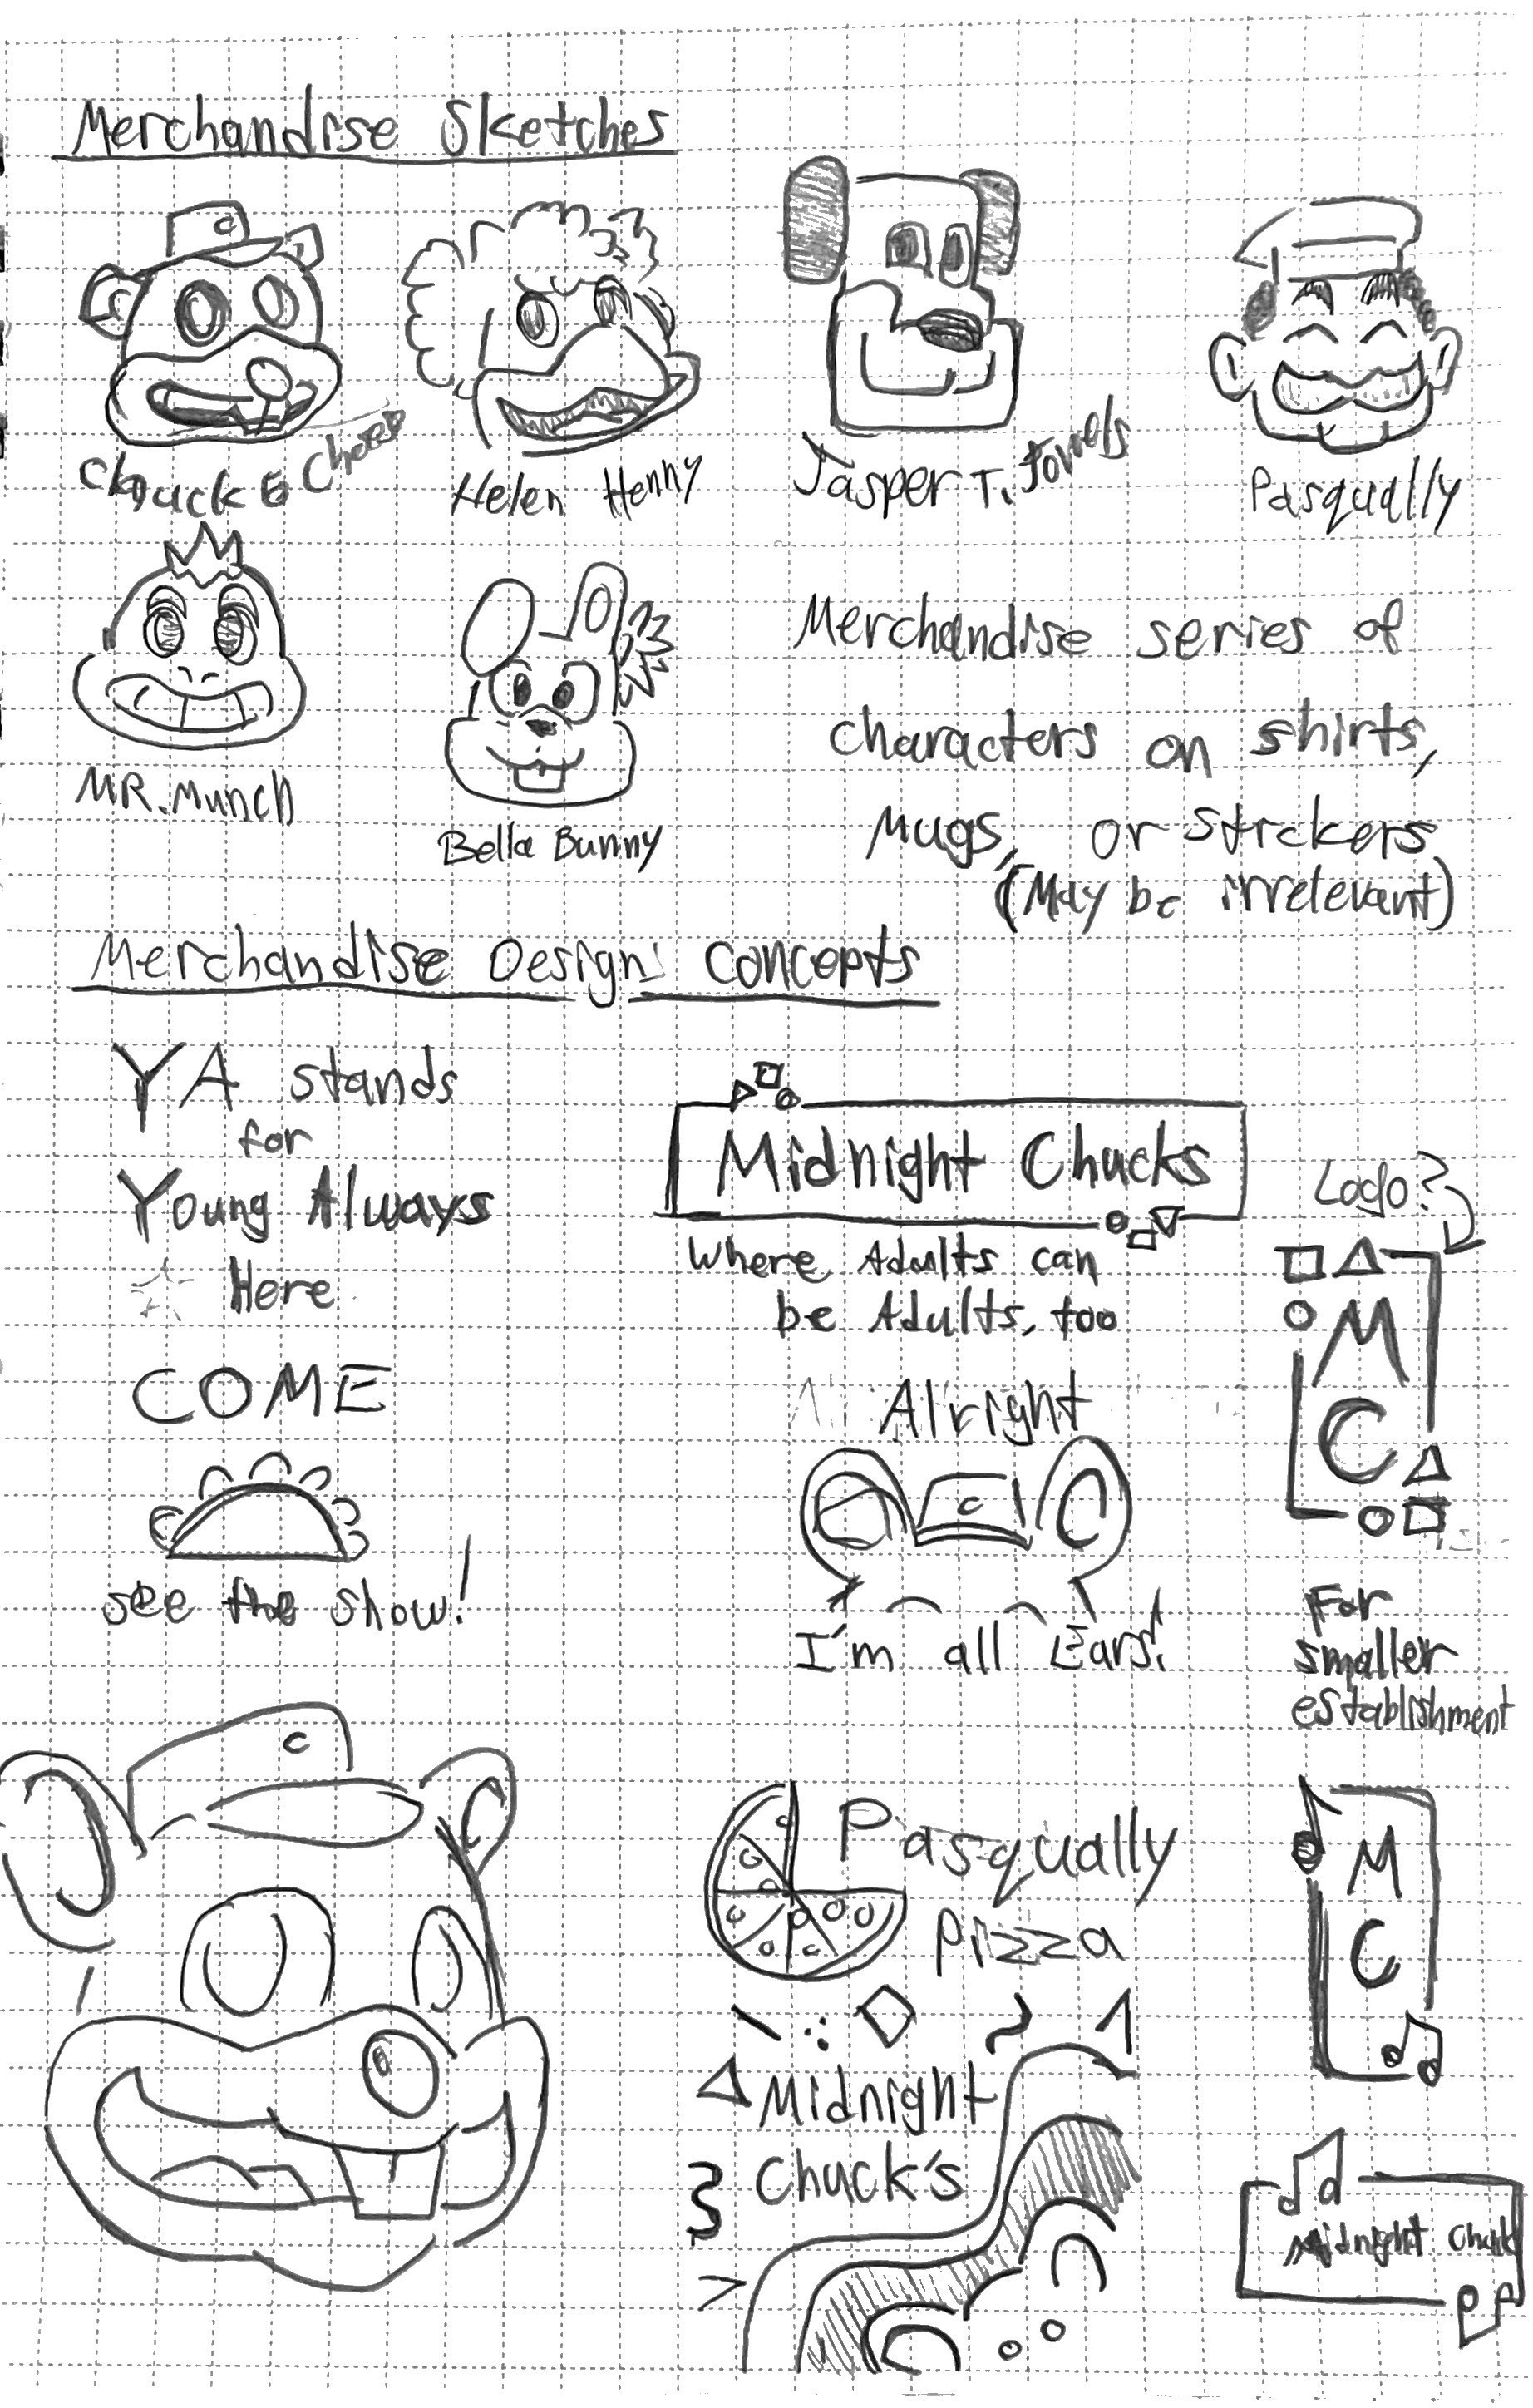 Merchandise Sketches
Chuck E Cheese
Helen Henny
Jasper T. Jowels
Pasqually
MR. Munch
Bella Bunny
Merchandise series of
characters on shirts,
Mugs, or stickers
(May be irrelevant)
Merchandise Design Concepts
YA stands
for
Young Always
Here
COME
see the show!
Midnight Chucks
Where Adults can
be Adults, too
Alright
C
I'm all Ears!
Logo?
M
C
For
smaller
establishment
C
Pasqually
Pizza
Midnight
Chuck's
M
C
Midnight Chuck